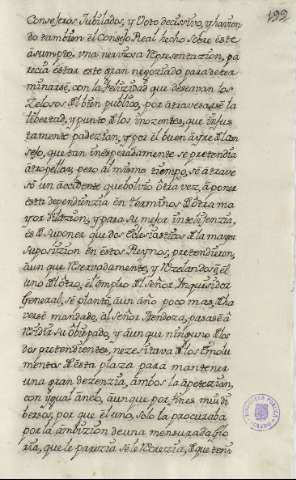 199
Consejeros Jubilados, y Voto decissivo, y havien
do tambien el Consejo Real hecho sobre este
asumpto, una nerviosa Representazion, pa
recia estar este gran negoziado para deter
minarse, con la felizidad que deseavan los
Zelosos del bien publico, por atravesarse la
libertad, y punto de los inozentes, que injus
tamente padezian, y por el buen ayre del Con
sejo, que tan inesperadamente se pretendia
atropellar, pero al mismo tiempo, se atrave
só un accidente que bolvio otra vez, a poner
esta dependienzia en terminos de otra ma
yor dilazion, y para su mejor intelijenzia,
es de suponer que dos Eclesiasticos de la mayor
suposizion en estos Reynos, pretendieron,
aunque Reservadamente, y Rezelandose el
uno del otro, el empleo de Señor Inquisidor
General, se plantó, aun año poco mas, de ha
verse mandado, al Señor Mendoza, pasase á
Residir su Obispado, y aunque ninguno de los
dos pretendientes, nezesitava de los Emolu
mentos de esta plaza para mantener
una gran dezenzia, ambos la apetezian,
con igual anelo, aunque por fines mui di
bersos, por que el uno, solo la procuraba
por la ambizion de una mensurada glo
ria, que le parezia se le Reservava, que teni